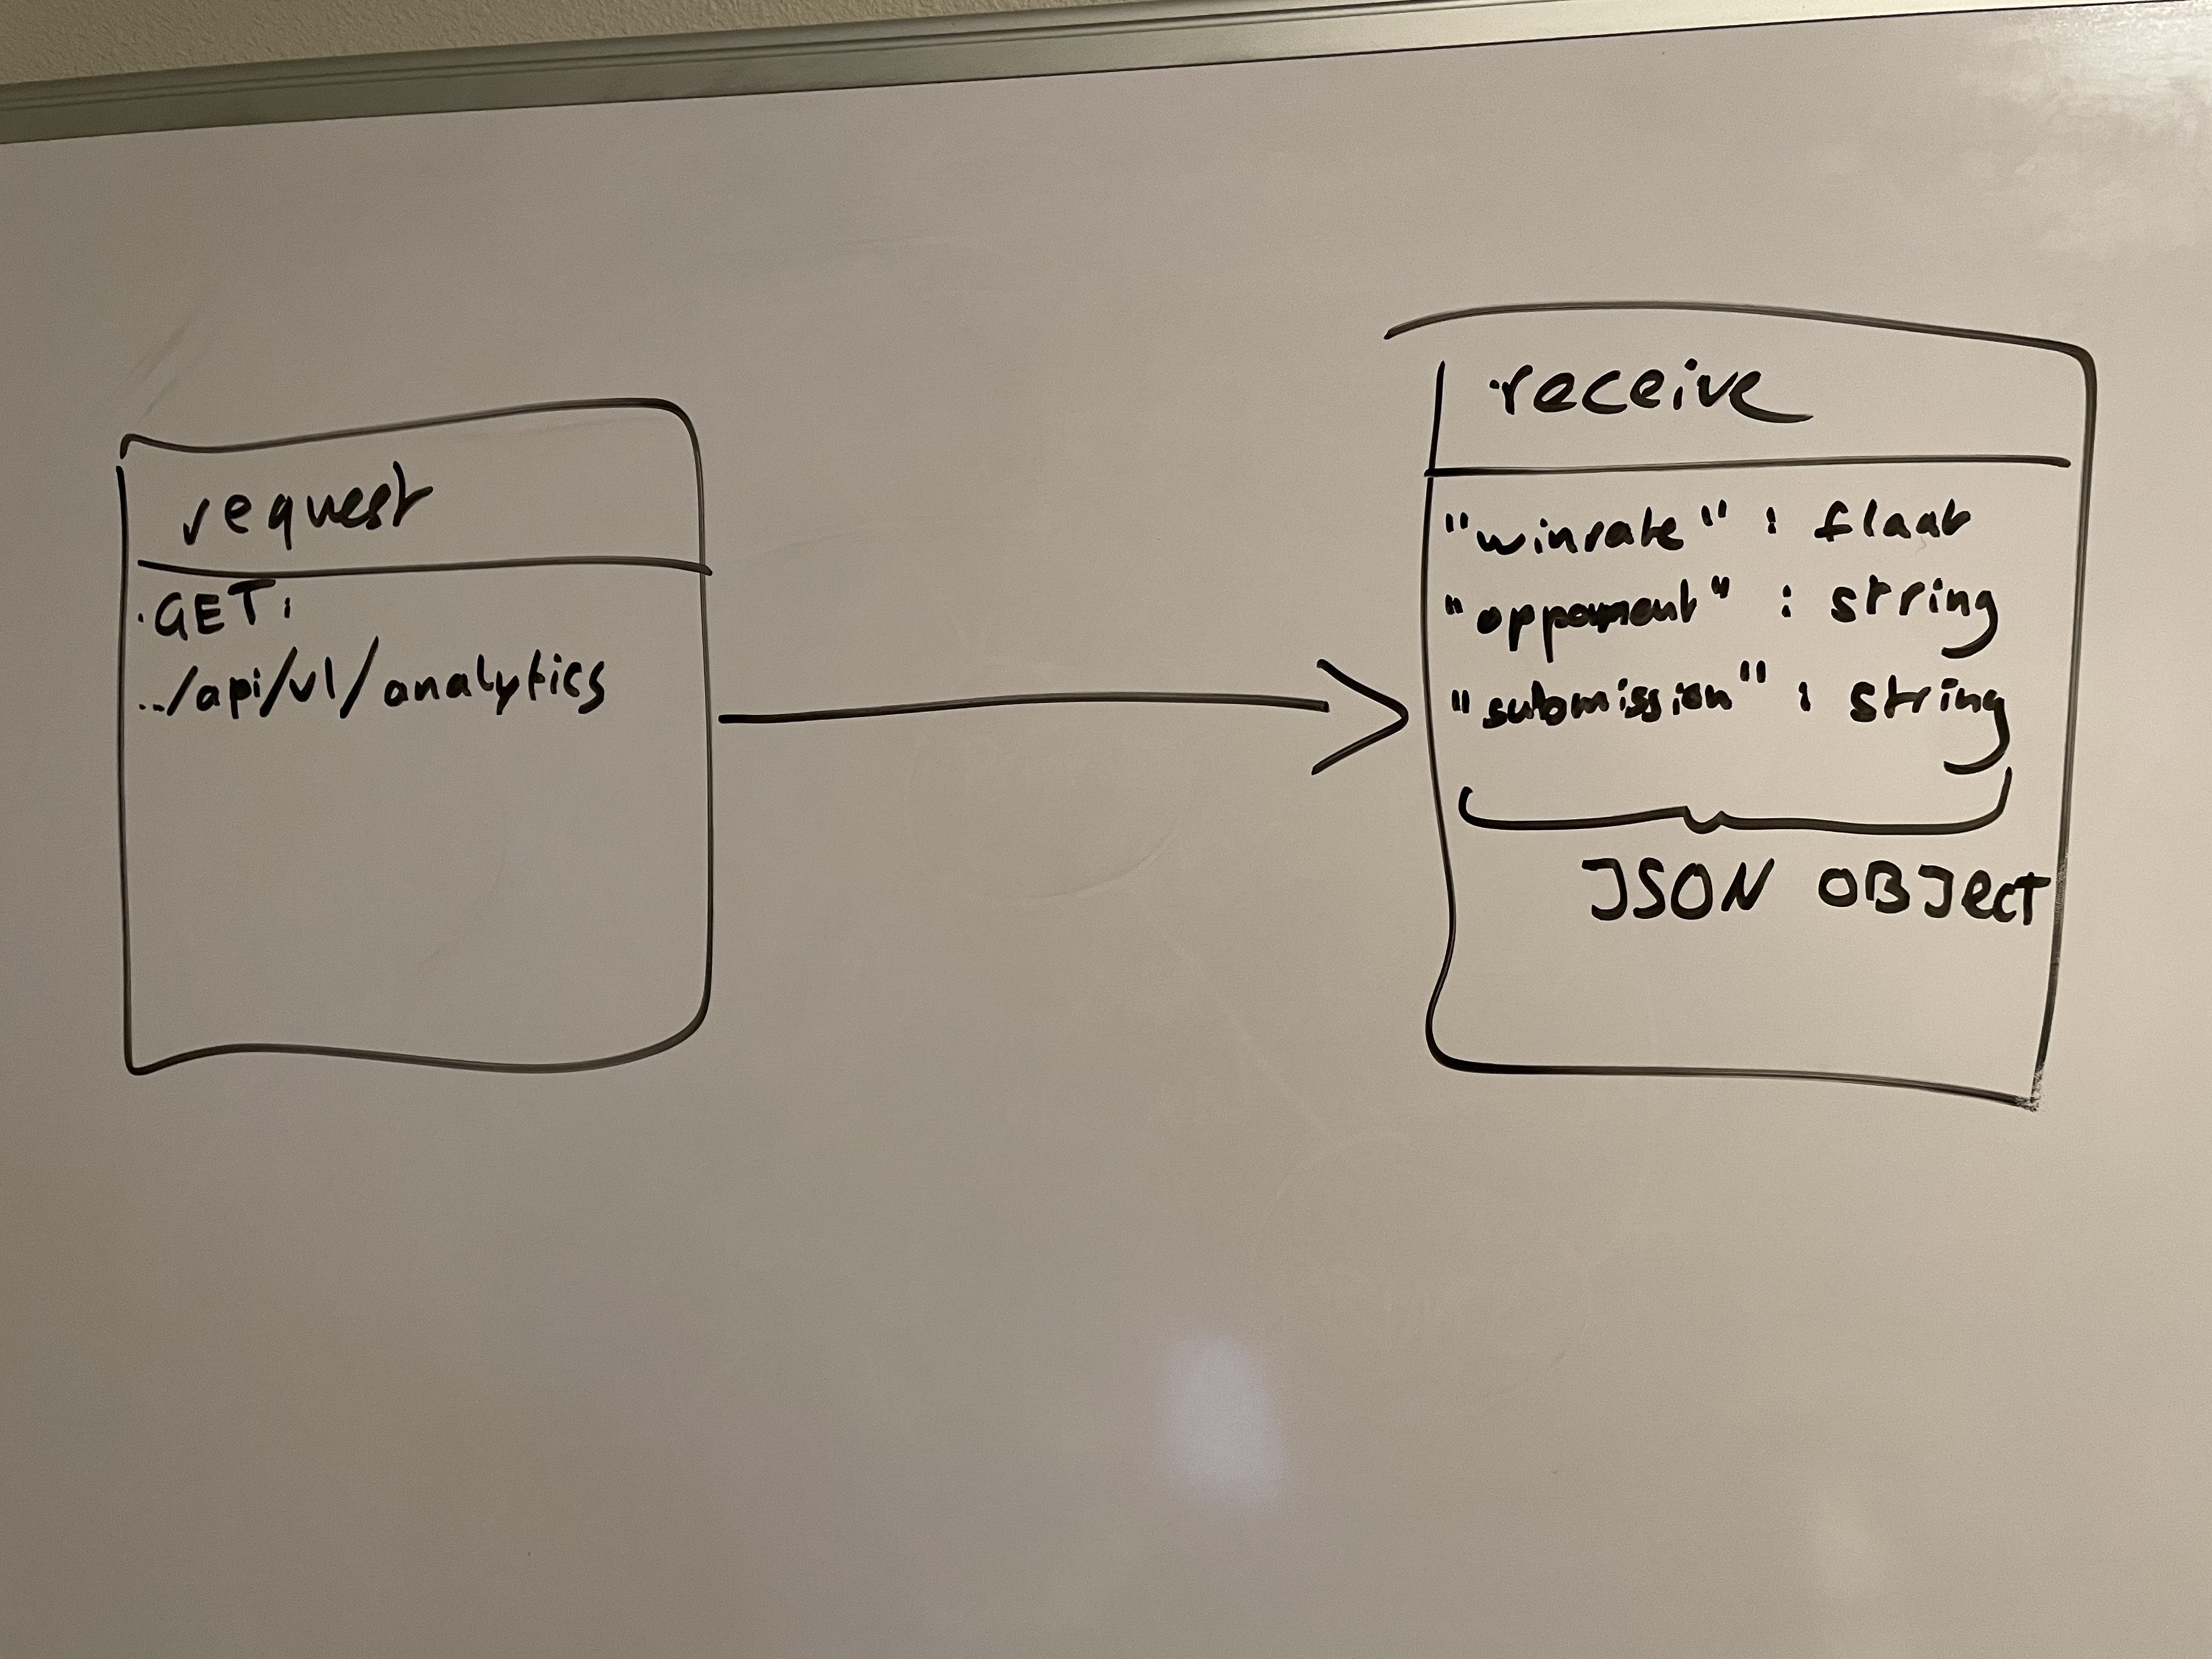 request
·GET:
../api/v1/analytics
receive
"winrate" : float
"opponent" : string
"submission" : string
JSON OBJect